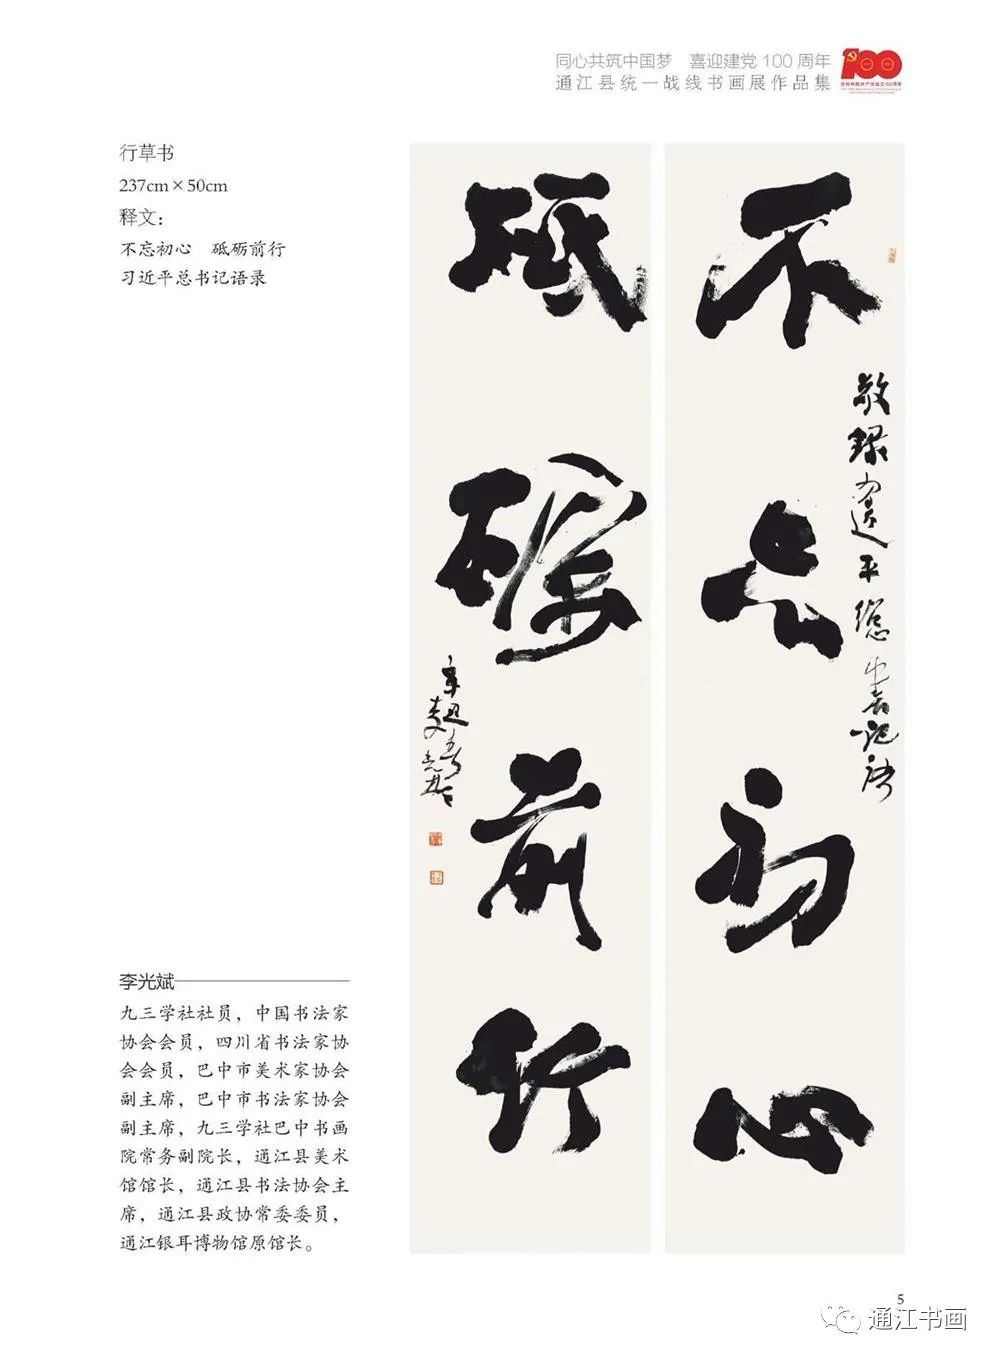 同心共筑中国梦　喜迎建党 100 周年
通江县统一战线书画展作品集
100
行草书
237cm×50cm
释文：
不忘初心　砥砺前行
习近平总书记语录
不忘初心
敬录习近平总书记语
砥砺前行
辛丑春李光斌
李光斌
九三学社社员，中国书法家
协会会员，四川省书法家协
会会员，巴中市美术家协会
副主席，巴中市书法家协会
副主席，九三学社巴中书画
院常务副院长，通江县美术
馆馆长，通江县书法协会主
席，通江县政协常委委员，
通江银耳博物馆原馆长。
5
通江书画